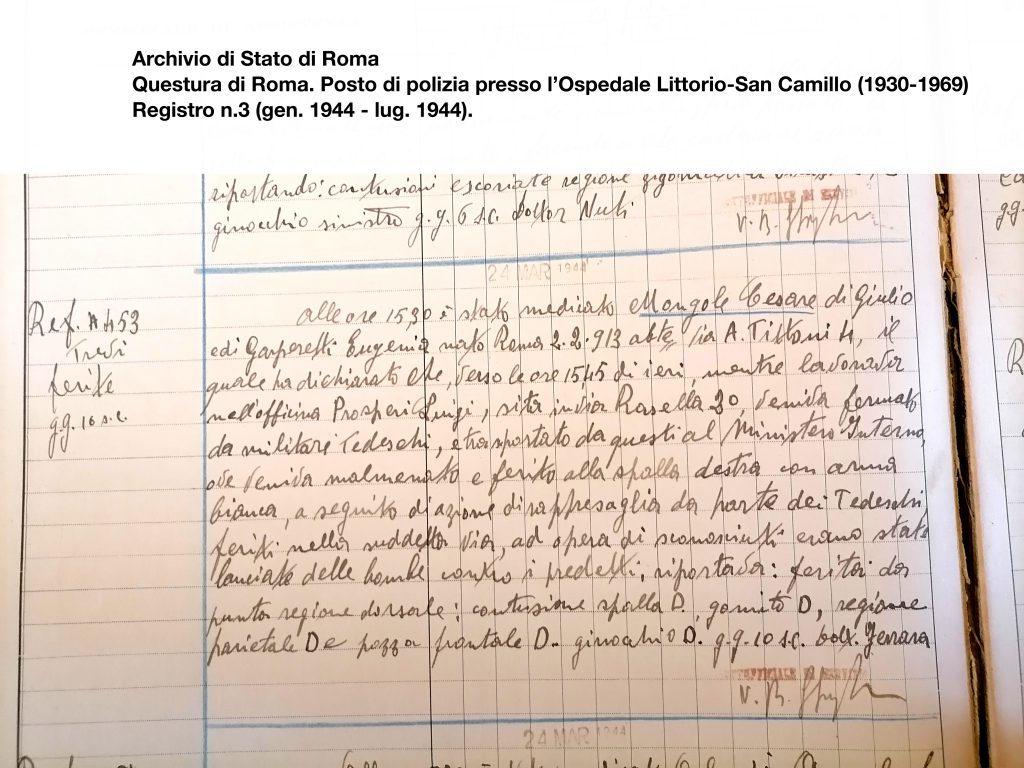 Archivio di Stato di Roma
Questura di Roma. Posto di polizia presso l'Ospedale Littorio-San Camillo (1930-1969)
Registro n.3 (gen. 1944 - lug. 1944).
riportando: contusioni escoriate regione
ginocchio sinistro g.g. 6 s.c. dottor Nuti
UFFICIALE DI
24 MAR 1944
Ref. N 453
Tredi
ferite
g.g. 10 s.c.
alle ore 15,30 è stato medicato Mongole Cesare di Giulio
e di Gasperetti Eugenia, nato Roma 2.2.913 abte Via A. Tittoni 4, il
quale ha dichiarato che, verso le ore 15,45 di ieri, mentre lavorava
nell'officina Prosperi Luigi, sita in via Rasella 30, veniva fermato
da militari Tedeschi, e trasportato da questi al Ministero Interno,
ove veniva malmenato e ferito alla spalla destra con arma
bianca, a seguito di azione di rappresaglia da parte dei Tedeschi
feriti nella suddetta via, ad opera di sconosciuti erano state
lanciate delle bombe contro i predetti; riportava: ferita da
punta regione dorsale; contusione spalla D, gomito D, regione
parietale D e bozza frontale D. ginocchio D. g.g. 10 s.c. dott. Ferrara
UFFICIALE DI SERVIZIO
24 MAR 1944